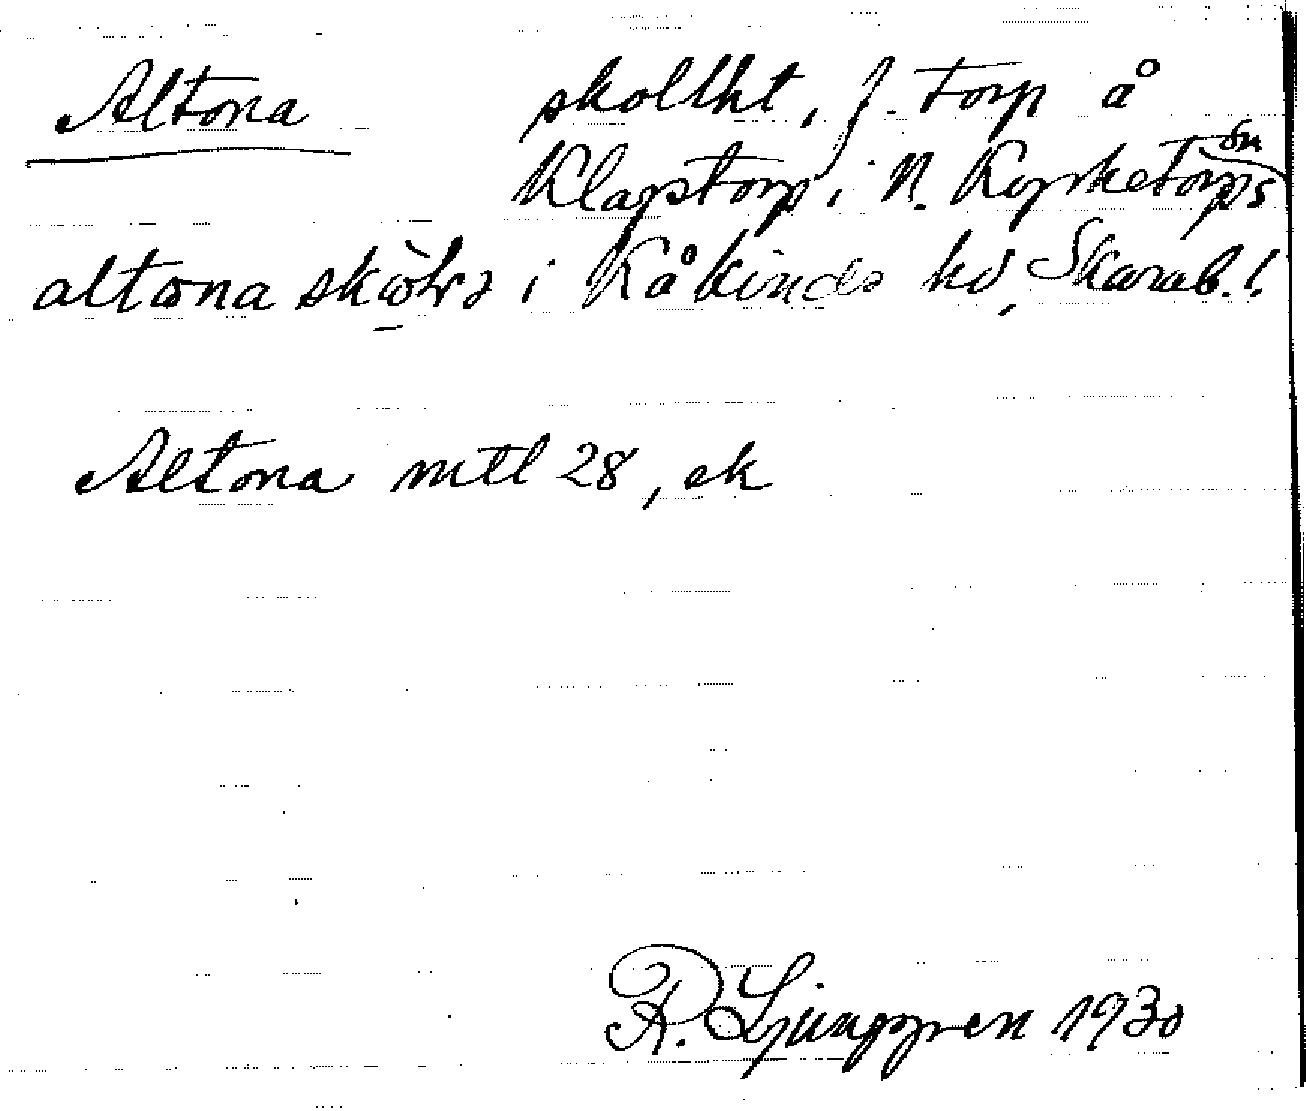 Altona skollht, f. torp å
Klapstorp, i N. Kyrketorps sn
altona i Kåkinds hd, Skarab. l.
Altona mtl 28, ek
R. Ljunggren 1930